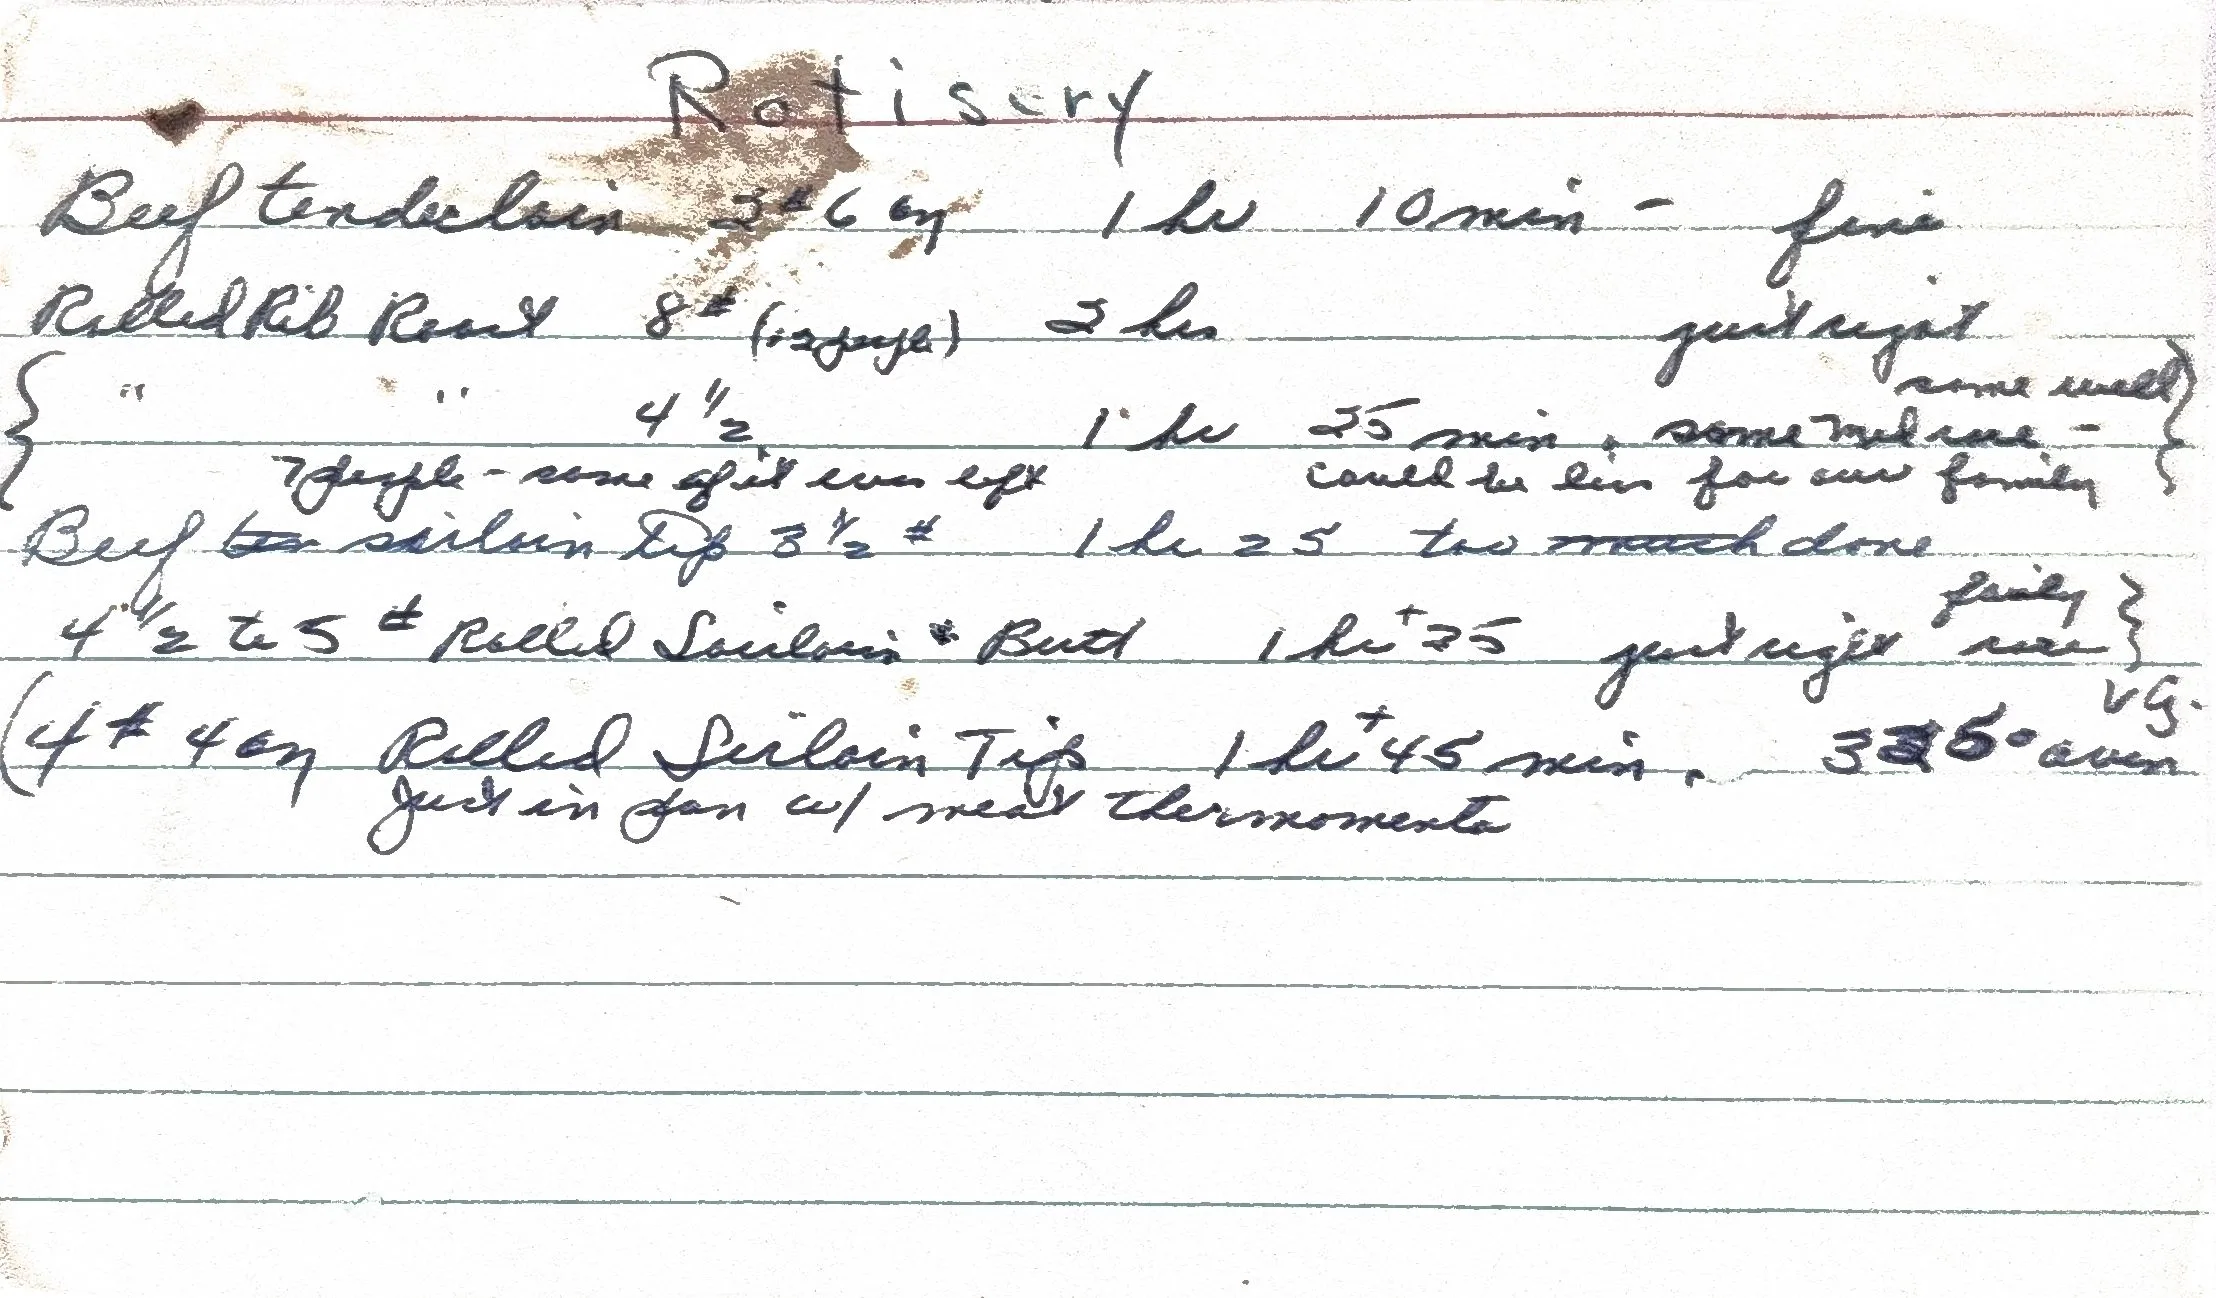 Rotisery
Beef tenderloin 3# 6 oz 1 hr 10 min - fine
Rolled Rib Roast 8# (12 people) 3 hrs just right
" " 4 1/2 1 hr 35 min. some med rare - some well
7 people - some of it was left could be less for our family
Beef sirloin tip 3 1/2 # 1 hr 25 too much done
4 1/2 to 5 # Rolled Sirloin Butt 1 hr + 35 just right fairly rare
(4 # 4 oz Rolled Sirloin Tip 1 hr + 45 min. 335° oven VG.
Just in pan w/ meat thermomenta